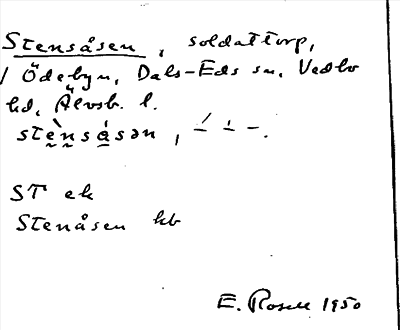 Stensåsen, soldattorp,
/ Ödebyn, Dals-Eds sn, Vedbo
hd, Älvsb. l.
stènsåsən, –́ –̇ –.
ST ek
Stenåsen kb
E. Rosell 1950